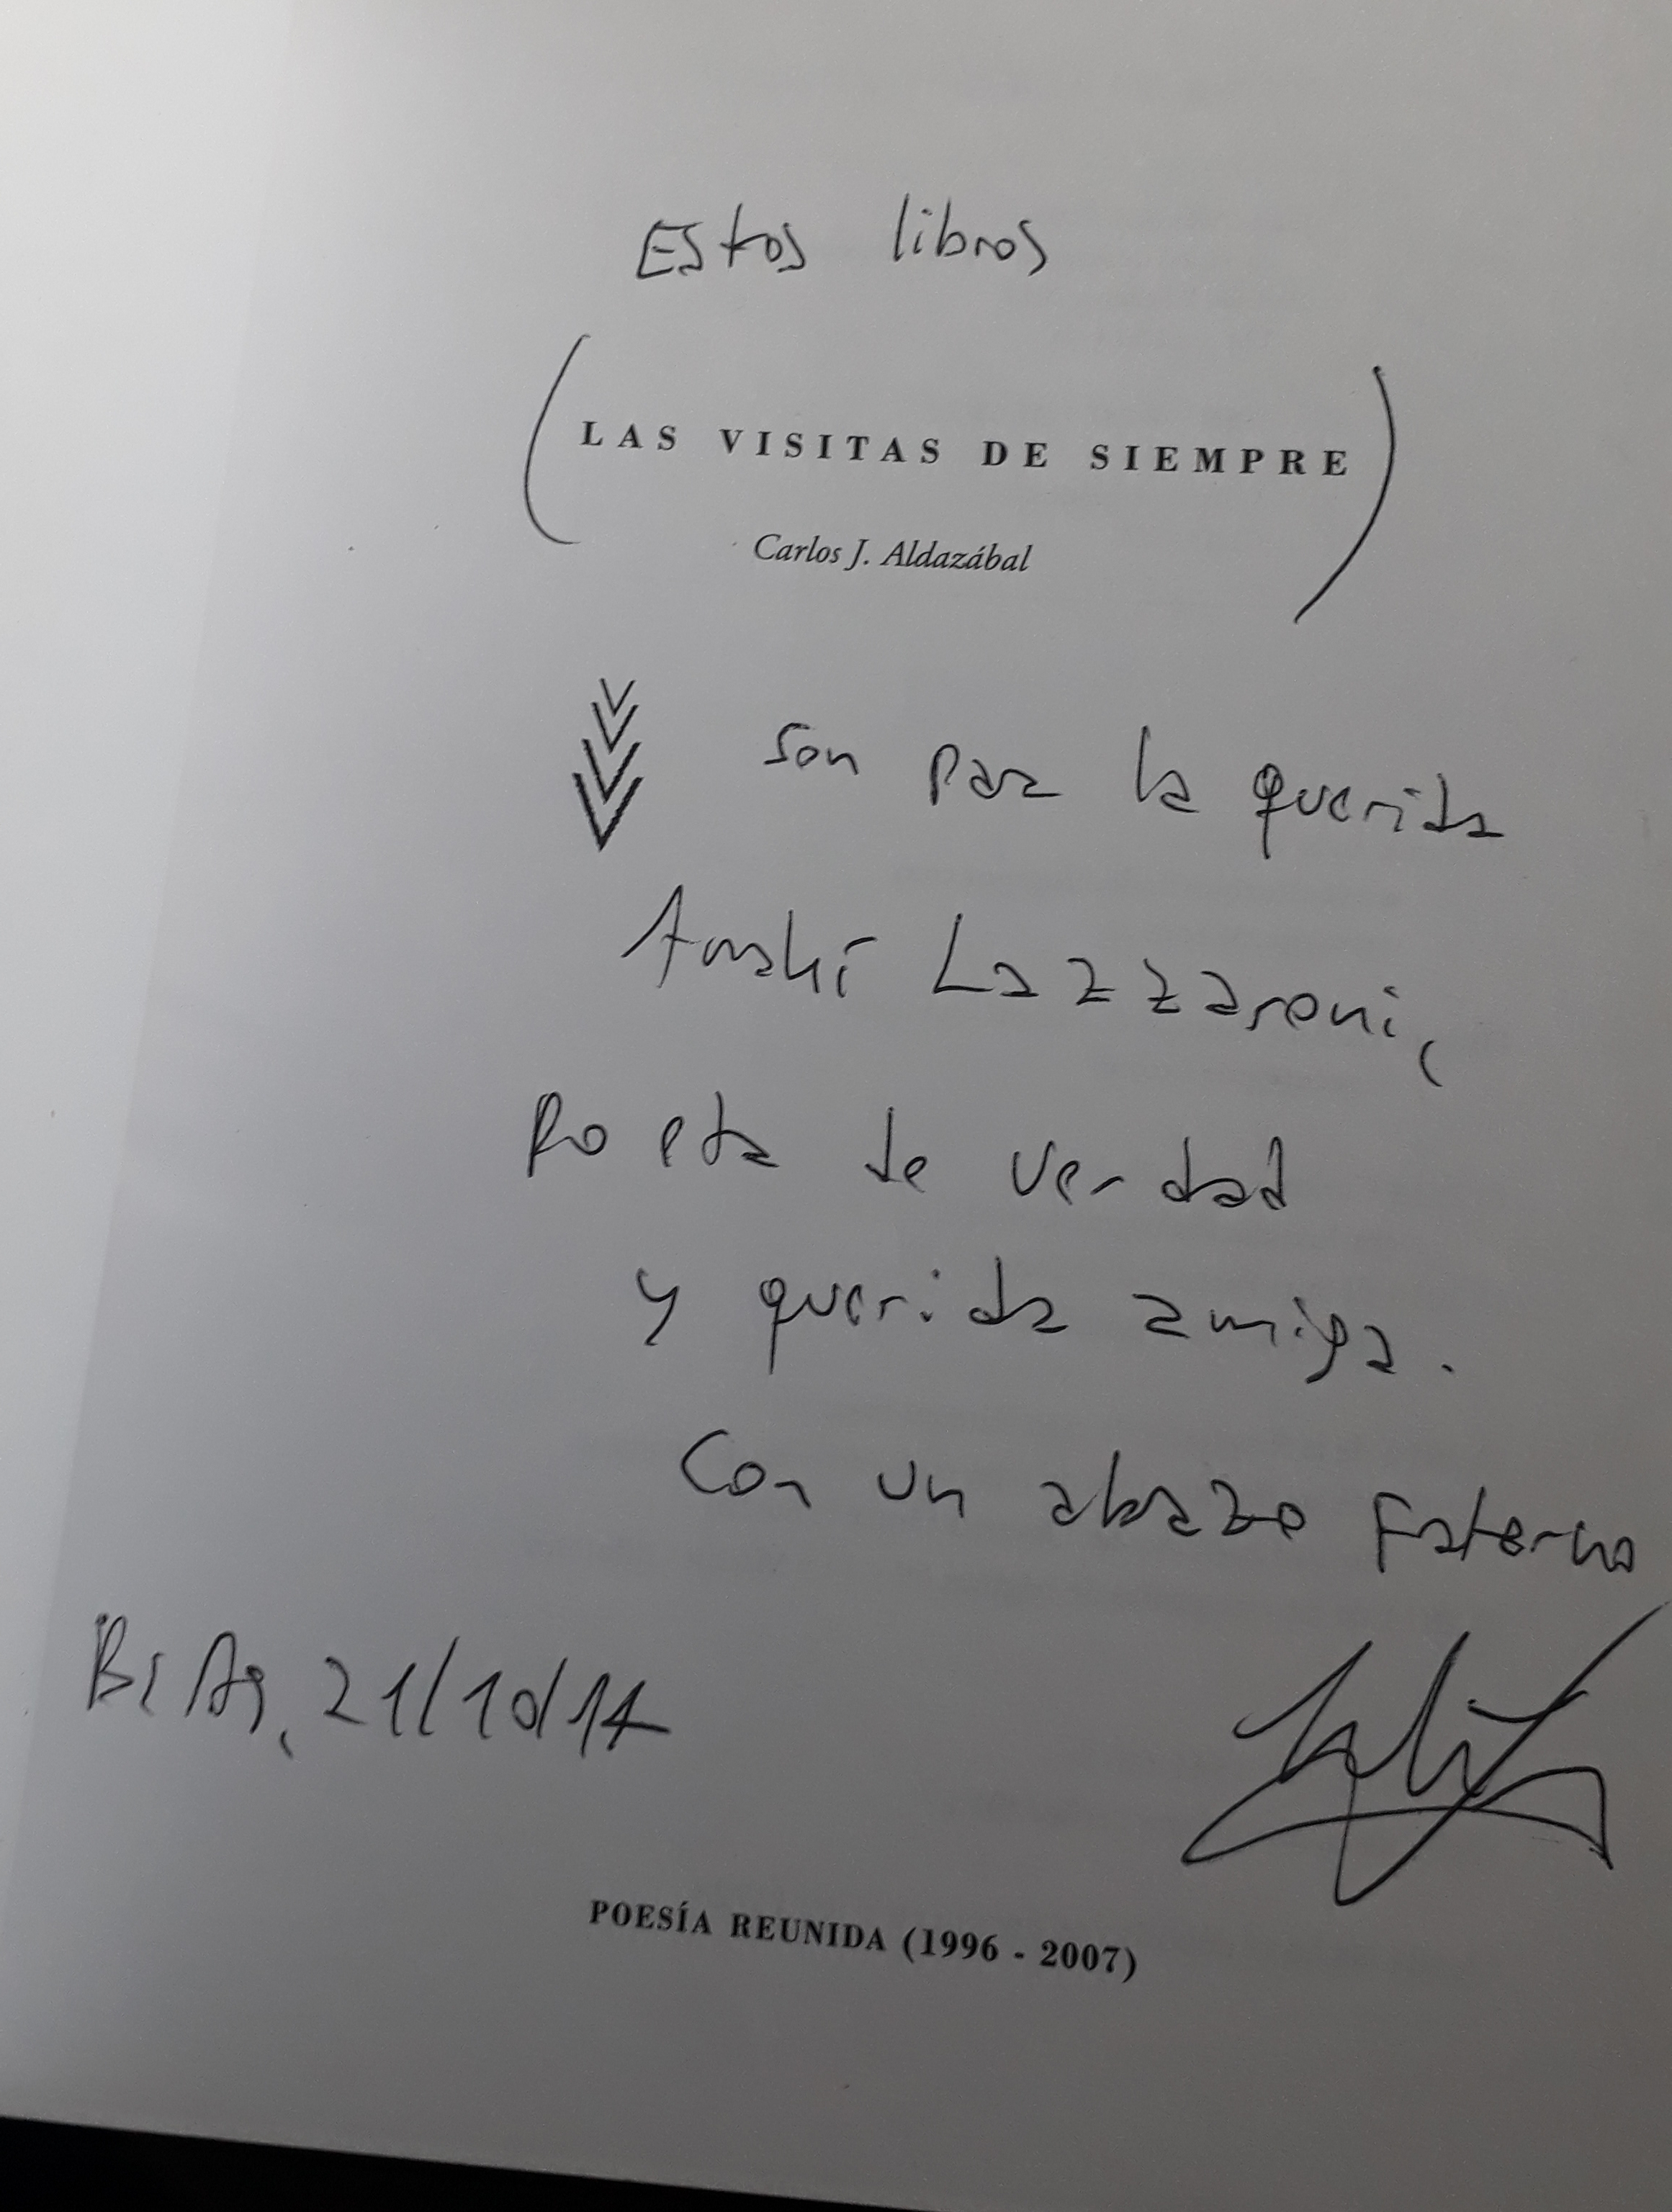 Estos libros
LAS VISITAS DE SIEMPRE
Carlos J. Aldazábal
son para la querida
Anahí Lazzaroni,
poeta de verdad
y querida amiga.
Con un abrazo fraterno
Bs As, 21/10/14
POESÍA REUNIDA (1996 - 2007)